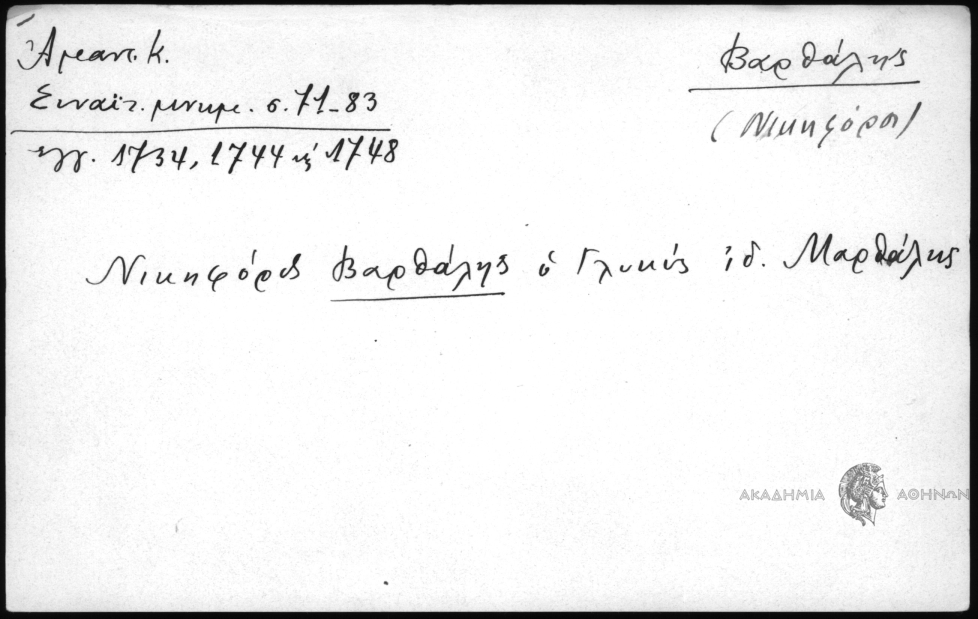 Ἀμαντ. Κ.
Σιναϊτ. μνημ. σ. 71-83
ἐγγ. 1734, 1744 κ 1748
Βαρθάλης
(Νικηφόρος)
Νικηφόρος Βαρθάλης ὁ Γλυκύς ἰδ. Μαρθάλης
ΑΚΑΔΗΜΙΑ ΑΘΗΝΩΝ